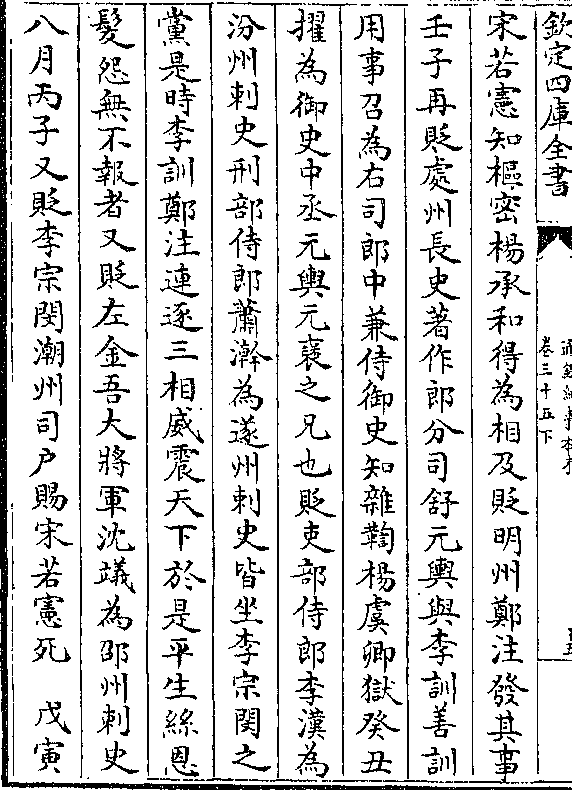 欽定四庫全書
卷三十五下
宋若憲知樞密楊承和得為相及貶明州鄭注發其事
壬子再貶處州長史著作郎分司舒元輿與李訓善訓
用事召為右司郎中兼侍御史知雜鞫楊虞卿獄癸丑
擢為御史中丞元輿元襃之兄也貶吏部侍郎李漢為
汾州刺史刑部侍郎蕭澣為遂州刺史皆坐李宗閔之
黨是時李訓鄭注連逐三相威震天下於是平生絲恩
髮怨無不報者又貶左金吾大將軍沈𥫃為邵州刺史
八月丙子又貶李宗閔潮州司户賜宋若憲死　戊寅